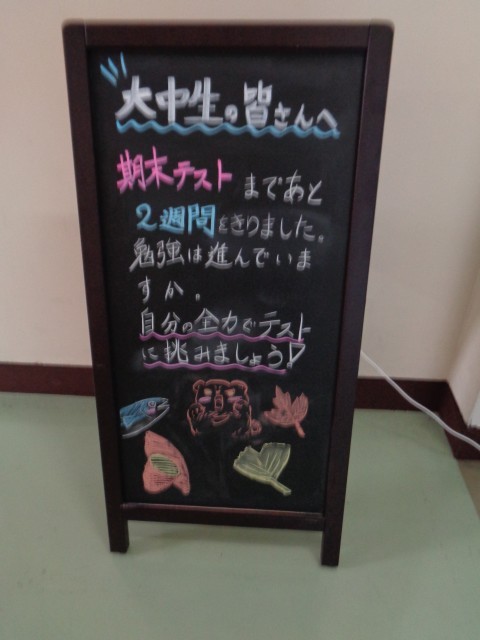 大中生の皆さんへ
期末テストまであと
2週間をきりました。
勉強は進んでいま
すか。
自分の全力でテスト
に挑みましょう!